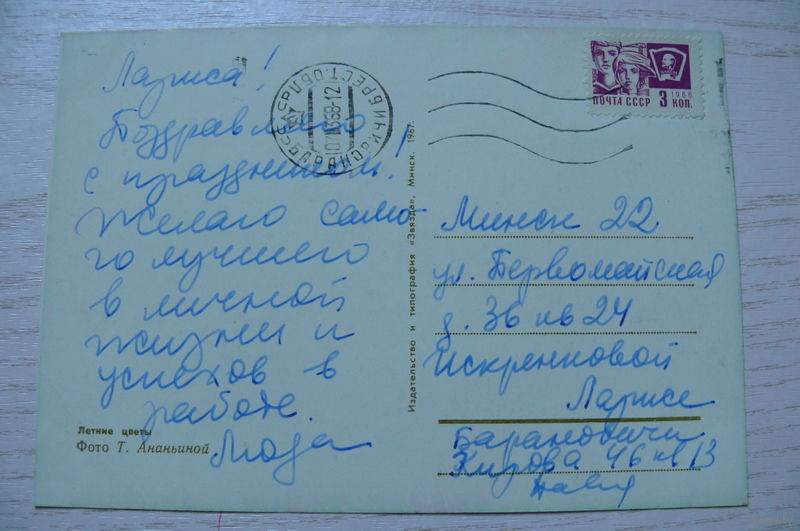 Лариса!
Поздравляю
с праздником!
Желаю само-
го лучшего
в личной
жизни и
успехов в
работе.
Люда
Летние цветы
Фото Т. Ананьиной
Издательство и типография «Звязда», Минск. 1967.
ПОЧТА СССР 3 КОП.
1966
БРЕСТ.ОБЛ.
Минск 22
ул. Первомайская
д. 36 кв 24
Искренковой
Ларисе
Барановичи
Кирова 46 кв 13